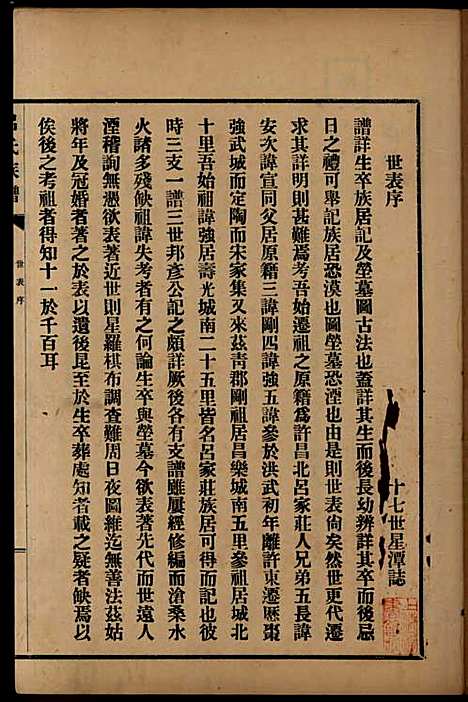 世表序
十七世星潭誌
譜詳生卒族居記及塋墓圖古法也蓋詳其生而後長幼辨詳其卒而後忌
日之禮可舉記族居恐漠也圖塋墓恐湮也由是則世表尚矣然世更代遷
求其詳明則甚難焉考吾始遷祖之原籍為許昌北呂家莊人兄弟五長諱
安次諱宣同父居原籍三諱剛四諱強五諱參於洪武初年離許東遷歷棗
強武城而定陶而朱家集又來茲青郡剛祖居昌樂城南五里參祖居城北
十里吾始祖諱強居壽光城南二十五里皆名呂家莊族居可得而記也彼
時三支一譜三世邦彥公記之頗詳厥後各有支譜雖屢經修編而滄桑水
火諸多殘缺祖諱失考者有之何論生卒與塋墓今欲表著先代而世遠人
湮稽詢無憑欲表著近世則星羅棋布調查難周日夜圖維迄無善法茲姑
將年及冠婚者著之於表以遺後昆至於生卒葬處知者載之疑者缺焉以
俟後之考祖者得知十一於千百耳
氏族譜
世表序